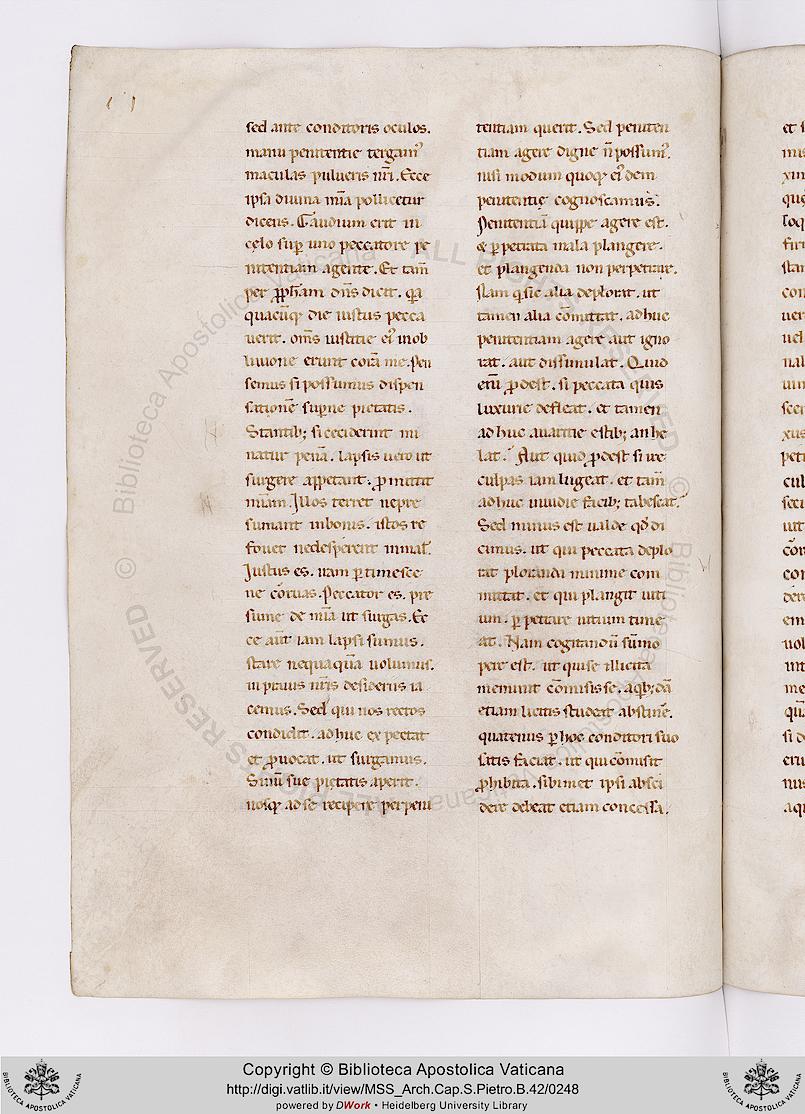 sed ante conditoris oculos.
manu penitentie tergam᷒
maculas pulueris nr̄i. Ecce
ipsa diuina mīa pollicetur
dicens. Gaudium erit in
celo sup̄ uno peccatore pe
nitentiam agente. Et tam̄
per ꝓph̄am dn̄s dicit. q̄a
quacūq; die iustus pecca
uerit. om̄s iustitie ei᷒ inob
liuione erunt corā me. Pen
semus si possumus dispen
sationē sup̄ne pietatis.
Stantib; si ceciderint mi
natur penā. lapsis uero ut
surgere appetant. ꝓmittit
mīam. Illos terret nepre
sumant inbonis. istos re
fouet nedesperent inmal̄.
Iustus es. iram ꝑtimesce
ne cōruas. Peccator es. pre
sume de mīa ut surgas. Ec
ce aūt iam lapsi sumus.
stare nequaquā uoluimus.
inprauis nr̄is desideriis ia
cemus. Sed qui nos rectos
condidit. adhuc expectat
et ꝓuocat. ut surgamus.
Sinū sue pietatis aperit.
nosq; adse recipere perpeni
tentiam querit. Sed peniten
tiam agere digne n̄ possum᷒.
nisi modum quoq; ei᷒dem
penitentię cognoscamus.
Penitentiā quippe agere est.
& ꝑpetrata mala plangere.
et plangenda non perpetrare.
Nam q̄ sic alia deplorat. ut
tamen alia cōmittat. adhuc
penitentiam agere aut igno
rat. aut dissimulat. Quid
enī ꝓdest. si peccata quis
luxurie defleat. et tamen
adhuc auaritie estib; anhe
lat. Aut quid ꝓdest si ire
culpas iam lugeat. et tam̄
adhuc inuidie facib; tabescat.
Sed minus est ualde qd̄ di
cimus. ut qui peccata deplo
rat ploranda minime com
mittat. et qui plangit uiti
um. ꝑpetrare uitium time
at. Nam cogitandū sūmo
pere est. ut quise illicita
meminit cōmisisse. aq̄b;dā
etiam licitis studeat abstinē.
quatenus ꝑ hoc conditori suo
satis faciat. ut qui cōmisit
ꝓhibita. sibimet ipsi absci
dere debeat etiam concessa.
Copyright © Biblioteca Apostolica Vaticana
http://digi.vatlib.it/view/MSS_Arch.Cap.S.Pietro.B.42/0248
powered by DWork • Heidelberg University Library